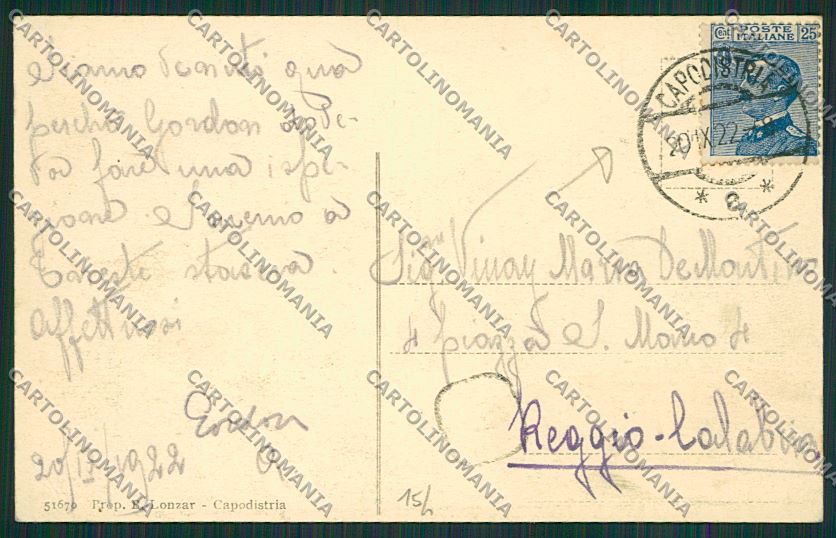 Siamo venuti qua
perchè Gordon vole-
va fare una ispe-
zione. Saremo a
Trieste stasera.
Affettuosi
Gordon
20/IX/1922
51679 Prop. E. Lonzar - Capodistria
POSTE ITALIANE
Cent 25
CAPODISTRIA
20 IX 22
Sig.ra Vinay Maria De
4 Piazza S. Marco 4
Reggio-Calabria
15/
CARTOLINOMANIA